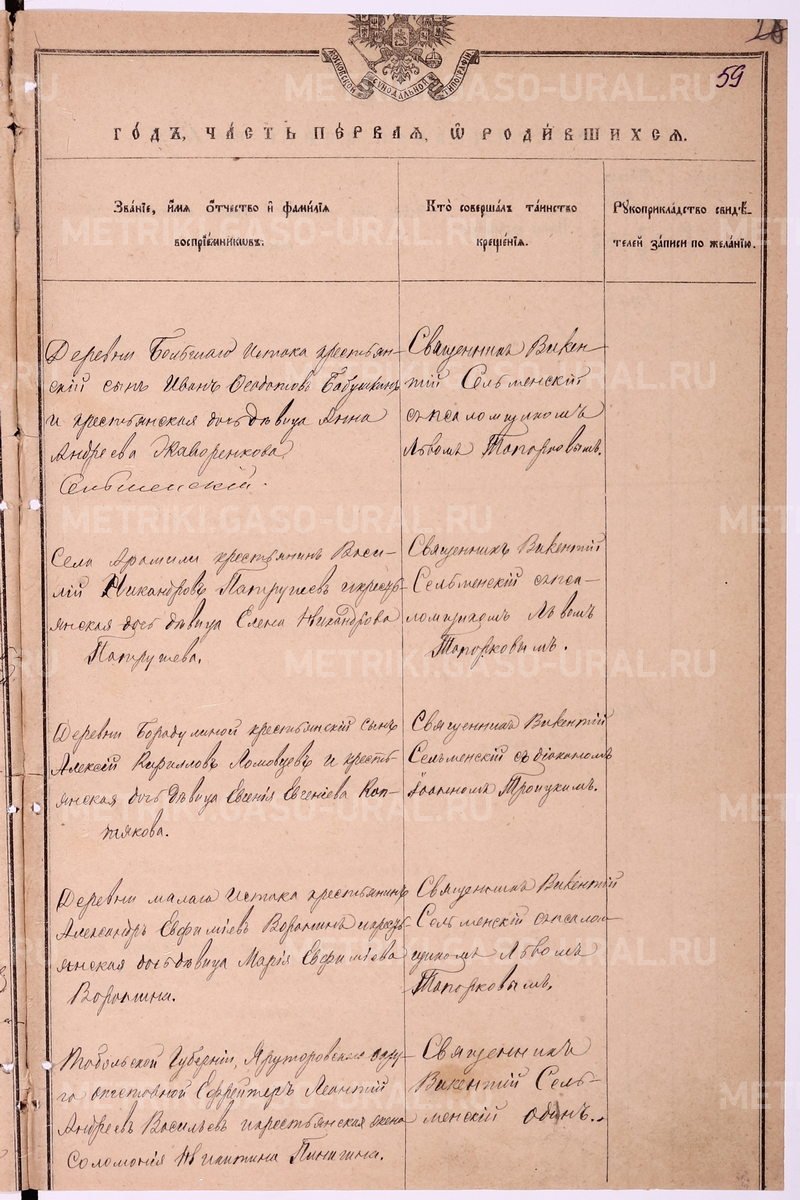 26
59
МОСКОВСКОЙ СѴНОДАЛЬНОЙ ТИПОГРАФІИ
ГОДЪ, ЧАСТЬ ПЕРВАЯ, Ѽ РОДИВШИХСЯ.
Званіе, имя отчество и фамилія
воспріемниковъ.
Кто совершалъ таинство
крещенія.
Рукоприкладство свидѣ-
телей записи по желанію.
Деревни Большаго Истока крестьян-
скій сынъ Иванъ Ѳеодотовъ Бабушкинъ
и крестьянская дочь дѣвица Анна
Андреева Жаворенкова
Сельменскій.
Священникъ Викен-
тій Сельменскій
съ псаломщикомъ
Львомъ Топорковымъ.
Села Арамили крестьянинъ Васи-
лій Никандровъ Патрушевъ и кресть-
янская дочь дѣвица Елена Никандрова
Патрушева.
Священникъ Викентій
Сельменскій съ пса-
ломщикомъ Львомъ
Топорковымъ.
Деревни Бородулиной крестьянскій сынъ
Алексѣй Кирилловъ Ломовцевъ и кресть-
янская дочь дѣвица Евгенія Евгеніева Коп-
тякова.
Священникъ Викентій
Сельменскій съ діакономъ
Іоанномъ Троицкимъ.
Деревни малаго Истока крестьянинъ
Александръ Евфиміевъ Воронинъ и кресть-
янская дочь дѣвица Марія Евфиміева
Воронина.
Священникъ Викентій
Сельменскій съ псалом-
щикомъ Львомъ
Топорковымъ.
Тобольской Губерніи, Ялуторовскаго окру-
га отставной Ефрейторъ Леонтій
Андреевъ Васильевъ и крестьянская жена
Соломонія Пинигина.
Священникъ
Викентій Сель-
менскій одинъ.
METRIKI.GASO-URAL.RU